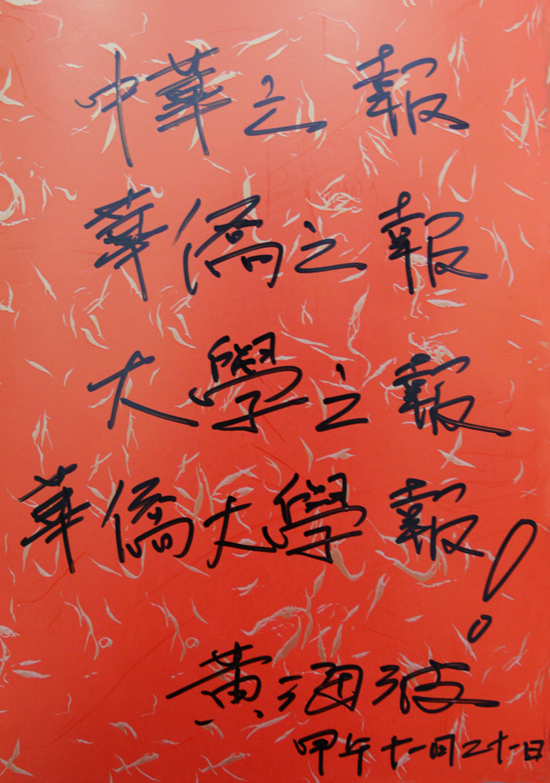 中華之報
華僑之報
大學之報
華僑大學報!
黃海波
甲午十一月二十一日